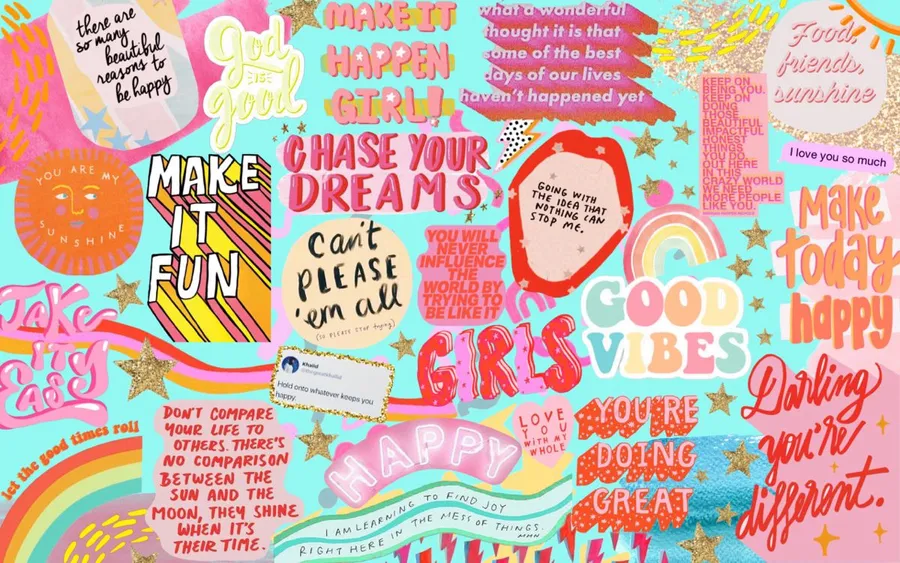 there are
so many
beautiful
reasons to
be happy
god
IS
good
MAKE IT
HAPPEN
GIRL!
what a wonderful
thought it is that
some of the best
days of our lives
haven't happened yet
KEEP ON
BEING YOU.
KEEP ON
DOING
THOSE
BEAUTIFUL
IMPACTFUL
HONEST
THINGS
YOU DO
OUT HERE
IN THIS
CRAZY WORLD
WE NEED
MORE PEOPLE
LIKE YOU.
Food,
friends,
sunshine
I love you so much
YOU ARE MY
SUNSHINE
MAKE
IT
FUN
CHASE YOUR
DREAMS
GOING WITH
THE IDEA THAT
NOTHING CAN
STOP ME.
make
today
happy
can't
PLEASE
'em all
(SO PLEASE STOP trying)
YOU WILL
NEVER
INFLUENCE
THE
WORLD BY
TRYING TO
BE LIKE IT
GOOD
VIBES
TAKE
IT
EASY
GIRLS
Khalid
Hold onto whatever keeps you
happy.
let the good times roll
DON'T COMPARE
YOUR LIFE TO
OTHERS. THERE'S
NO COMPARISON
BETWEEN THE
SUN AND THE
MOON, THEY SHINE
WHEN IT'S
THEIR TIME.
HAPPY
LOVE
YOU
WITH MY
WHOLE
I AM LEARNING TO FIND JOY
RIGHT HERE IN THE MESS OF THINGS.
MHN
YOU'RE
DOING
GREAT
Darling
you're
different.